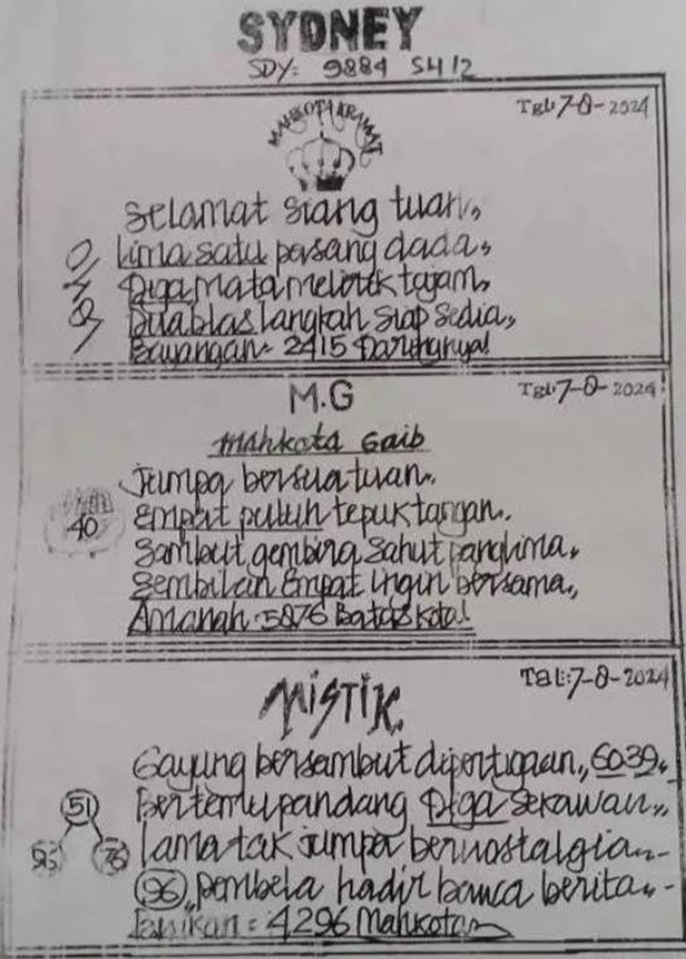 SYDNEY
SDY: 9884 SH12
Tgl: 7-8-2024
MAHKOTA KRAMAT
Selamat siang tuan,,
lima satu pasang dada,,
Diga, mata melirik tajam,
Duablas langkah siap sedia,,
Bayangan = 2415
M.G
Tgl: 7-8-2024
Mahkota Gaib
Jumpa bersua tuan..
40
empat puluh tepuk tangan..
Sambut gembira sahut panglima,
Sembilan empat ingin bersama,,
Amanah: 5876 Batas kota!
MISTIK
Tgl: 7-8-2024
Gayung bersambut dipertigaan,, 6039,
51
Bertemu pandang Diga Sekawan,,
lama tak jumpa bernostalgia..-
96 pembela hadir baca berita..-
= 4296 Mahkota